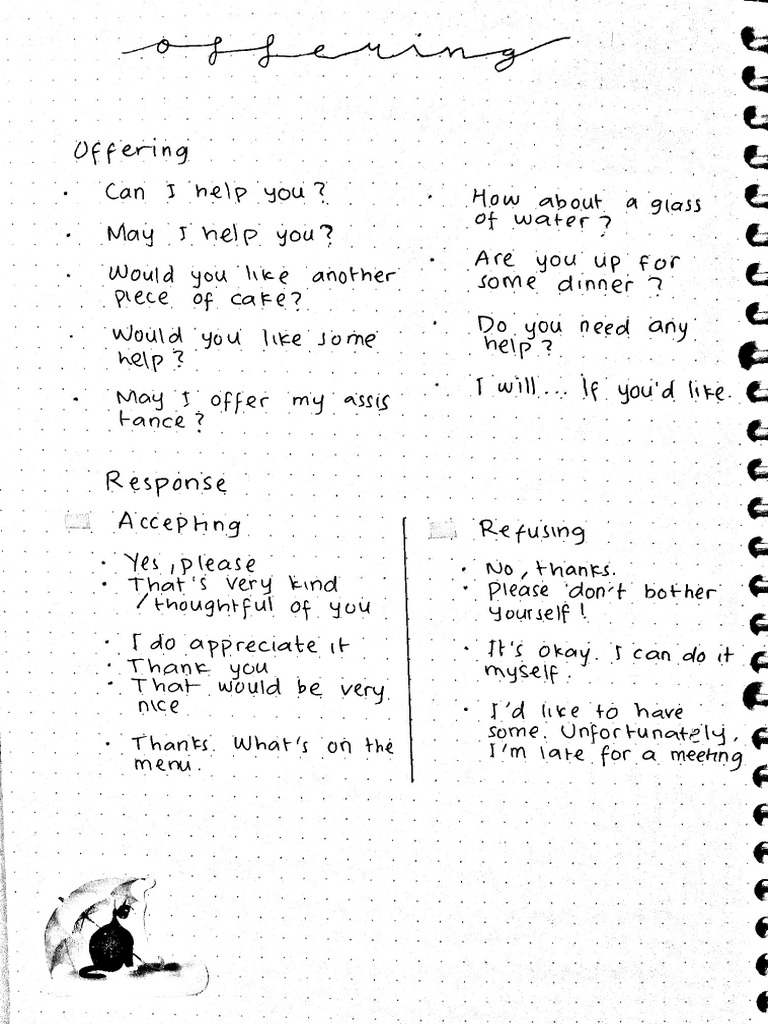 offering
Offering
· Can I help you?
· May I help you?
· Would you like another
piece of cake?
· Would you like some
help?
· May I offer my assis
tance?
· How about a glass
of water?
· Are you up for
some dinner?
· Do you need any
help?
· I will... If you'd like.
Response
Accepting
· Yes, please
· That's very kind
/thoughtful of you
· I do appreciate it
· Thank you
· That would be very
nice
· Thanks. What's on the
menu.
Refusing
· No, thanks.
· Please don't bother
yourself!
· It's okay. I can do it
myself.
· I'd like to have
some. Unfortunately,
I'm late for a meeting